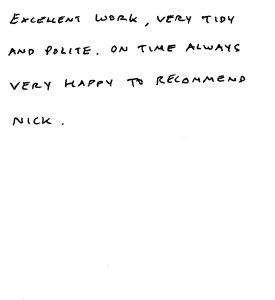 EXCELLENT WORK, VERY TIDY
AND POLITE. ON TIME ALWAYS
VERY HAPPY TO RECOMMEND
NICK.